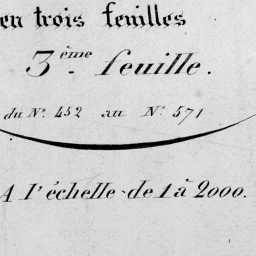 en trois feuilles
3ème feuille.
du N°. 452 au N°. 571
A l'échelle de 1 à 2000.